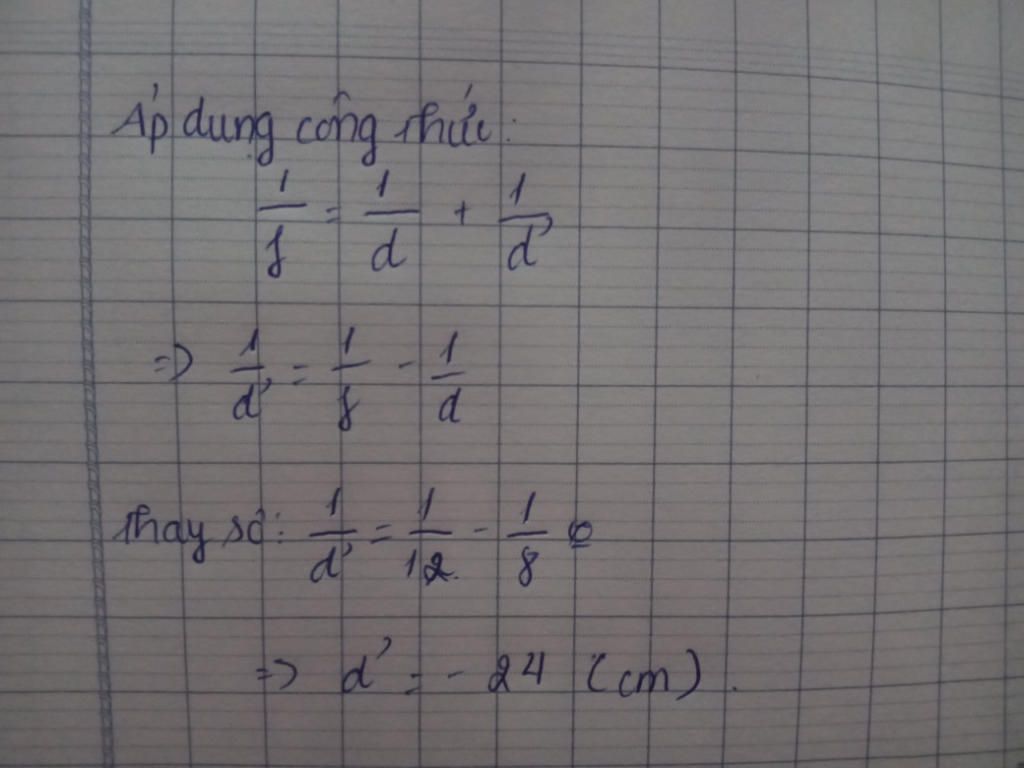 Áp dụng công thức:
1/f = 1/d + 1/d'
=> 1/d' = 1/f - 1/d
Thay số: 1/d' = 1/12 - 1/8
=> d' = - 24 (cm).